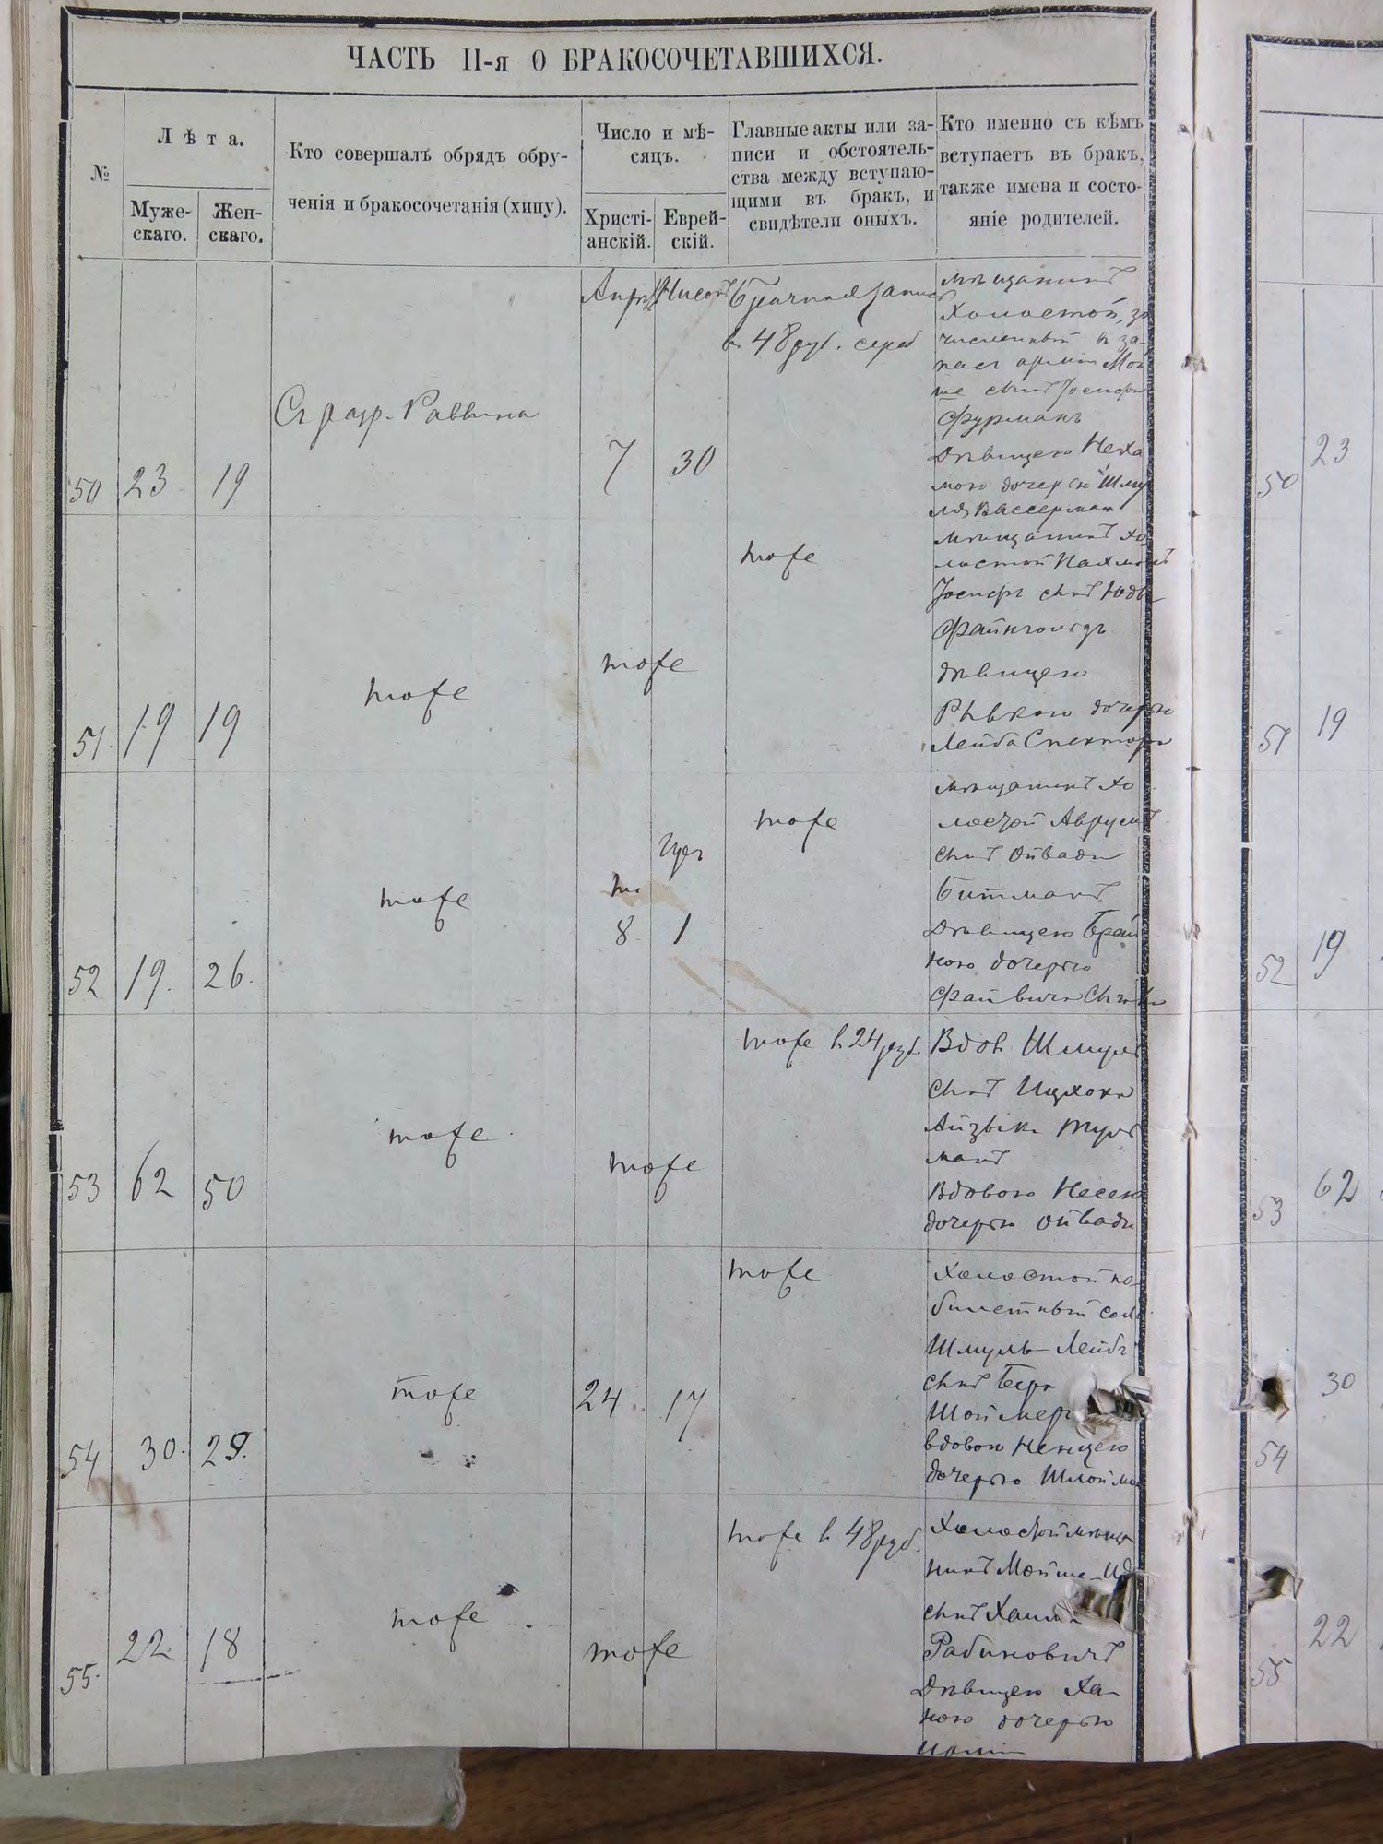 ЧАСТЬ II-я О БРАКОСОЧЕТАВШИХСЯ.
№
Лѣта.
Муже-
скаго.
Жен-
скаго.
Кто совершалъ обрядъ обру-
ченія и бракосочетанія (хипу).
Число и мѣ-
сяцъ.
Христі-
анскій.
Еврей-
скій.
Главные акты или за-
писи и обстоятель-
ства между вступаю-
щими въ бракъ, и
свидѣтели оныхъ.
Кто именно съ кѣмъ
вступаетъ въ бракъ,
также имена и состо-
яніе родителей.
50
23
19
Съ разр. Раввина
7
30
в. 48 руб. сереб
мѣщанинъ
Холостой, за
численный въ за-
пасъ арміи Мой
ше сынъ Іосифа
Фурманъ
Дѣвицею Неха
мою дочерью Шму
ля Вассерман
51
19
19
тоже
тоже
тоже
мѣщанинъ хо
лостой Нахманъ
Іосифъ сынъ Юды
Файнгольдъ
дѣвицею
Рывкою дочерью
Лейба Спектора
52
19.
26.
тоже
8
1
тоже
мѣщанинъ хо
лостой Аврумъ
сынъ Овади
Битманъ
Дѣвицею Брай
ною дочерью
53
62
50
тоже
тоже
тоже в 24 руб.
Вдов Шмуль
сынъ Ицхока
Айзыка
манъ
Вдовою Несею
дочерью Овади
54
30.
29.
тоже
24.
17
тоже
Холостой
билетный солд
Шмуль-Лейбъ
сынъ Бера
Шоймер
вдовою
дочерью Шлоймы
55.
22.
18
тоже
тоже
тоже в 48 руб.
Холостой мѣща
нинъ Мойше-
сынъ Хаима
Рабиновичъ
Дѣвицею Ха-
ною дочерью
50
23
51
19
52
19
53
62
54
30
55
22